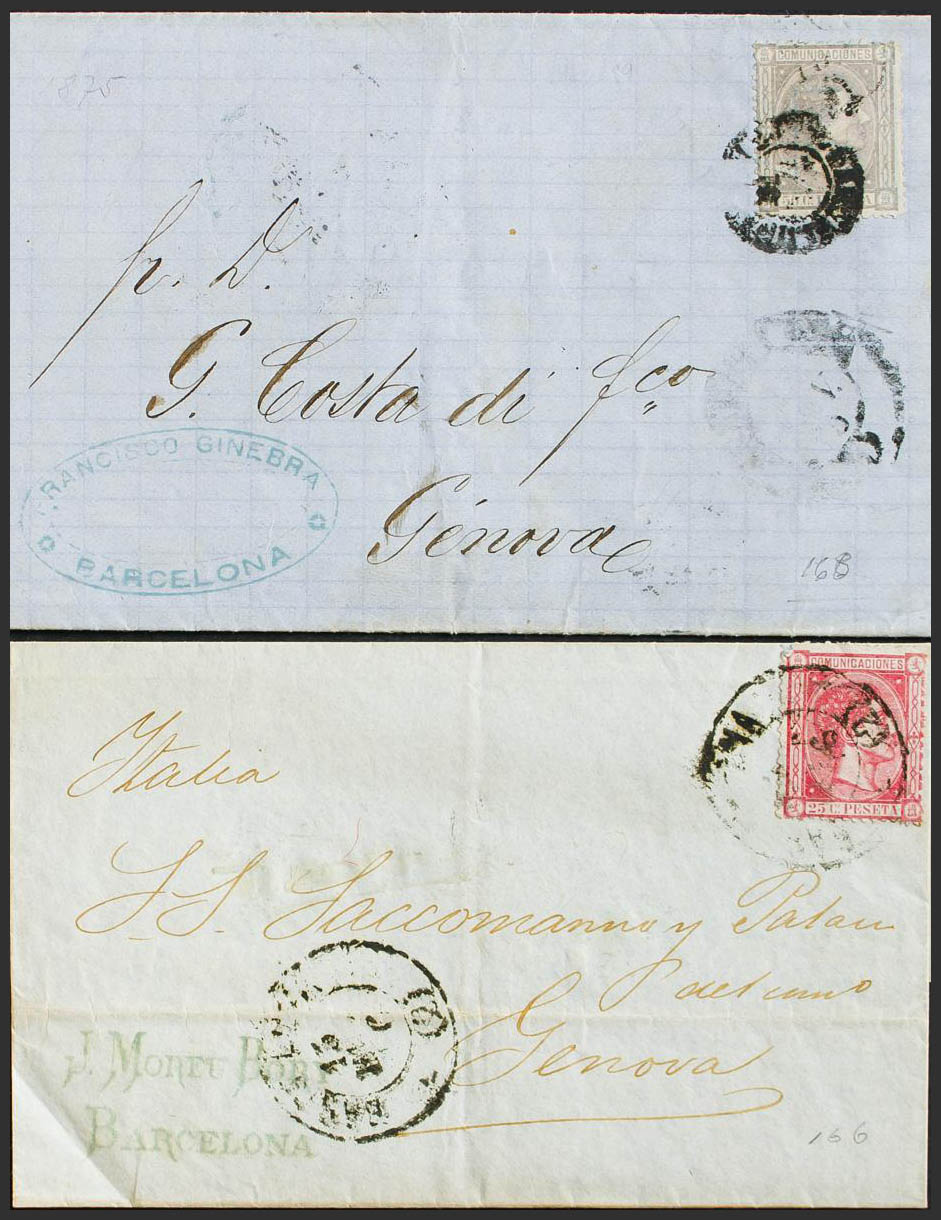 1875
COMUNICACIONES
p. D.
G. Costa di fco
Génova
FRANCISCO GINEBRA
BARCELONA
168
COMUNICACIONES
25 Cs PESETA
Italia
S.S. Saccomanno y
Genova
J. MORET
BARCELONA
166